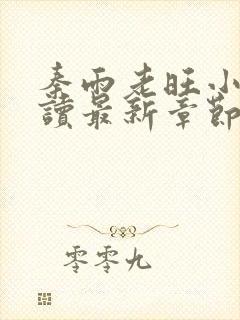 秦雨老旺小
讀最新章節
零零九